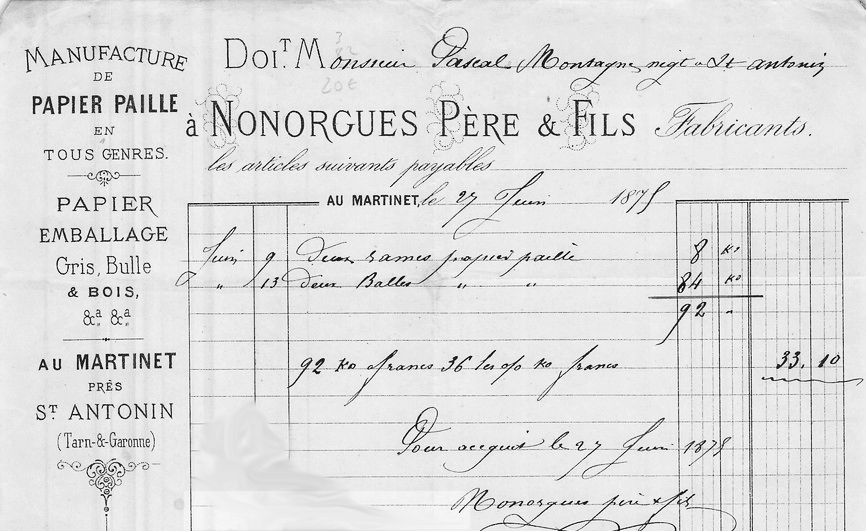 MANUFACTURE
DE
PAPIER PAILLE
EN
TOUS GENRES.
PAPIER
EMBALLAGE
Gris, Bulle
& BOIS,
&a. &a.
AU MARTINET
PRÈS
ST ANTONIN
(Tarn-&-Garonne)
DOIT. Monsieur Pascal Montagne negt a St antonin
à NONORGUES PÈRE & FILS Fabricants.
les articles suivants payables
AU MARTINET, le 27 Juin 1875
Juin 9 deux rames papier paille 8 ko
" 13 deux Balles " " 84 ko
92 "
92 ko a francs 36 les o/o ko francs 33.10
Pour acquit le 27 Juin 1875
Nonorgues père & fils